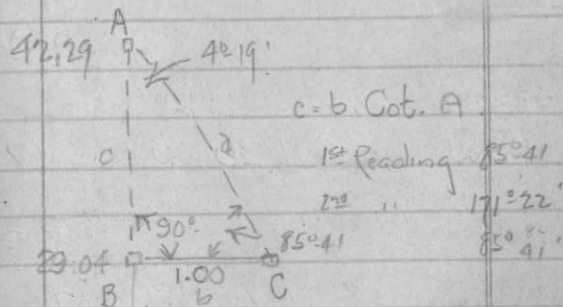 A
42,29 4°-19'
c = b Cot. A
c a 1st Reading 85°-41
2nd " 171°-22'
90° 85°-41 85° 41'
29.04 1.00
B b C